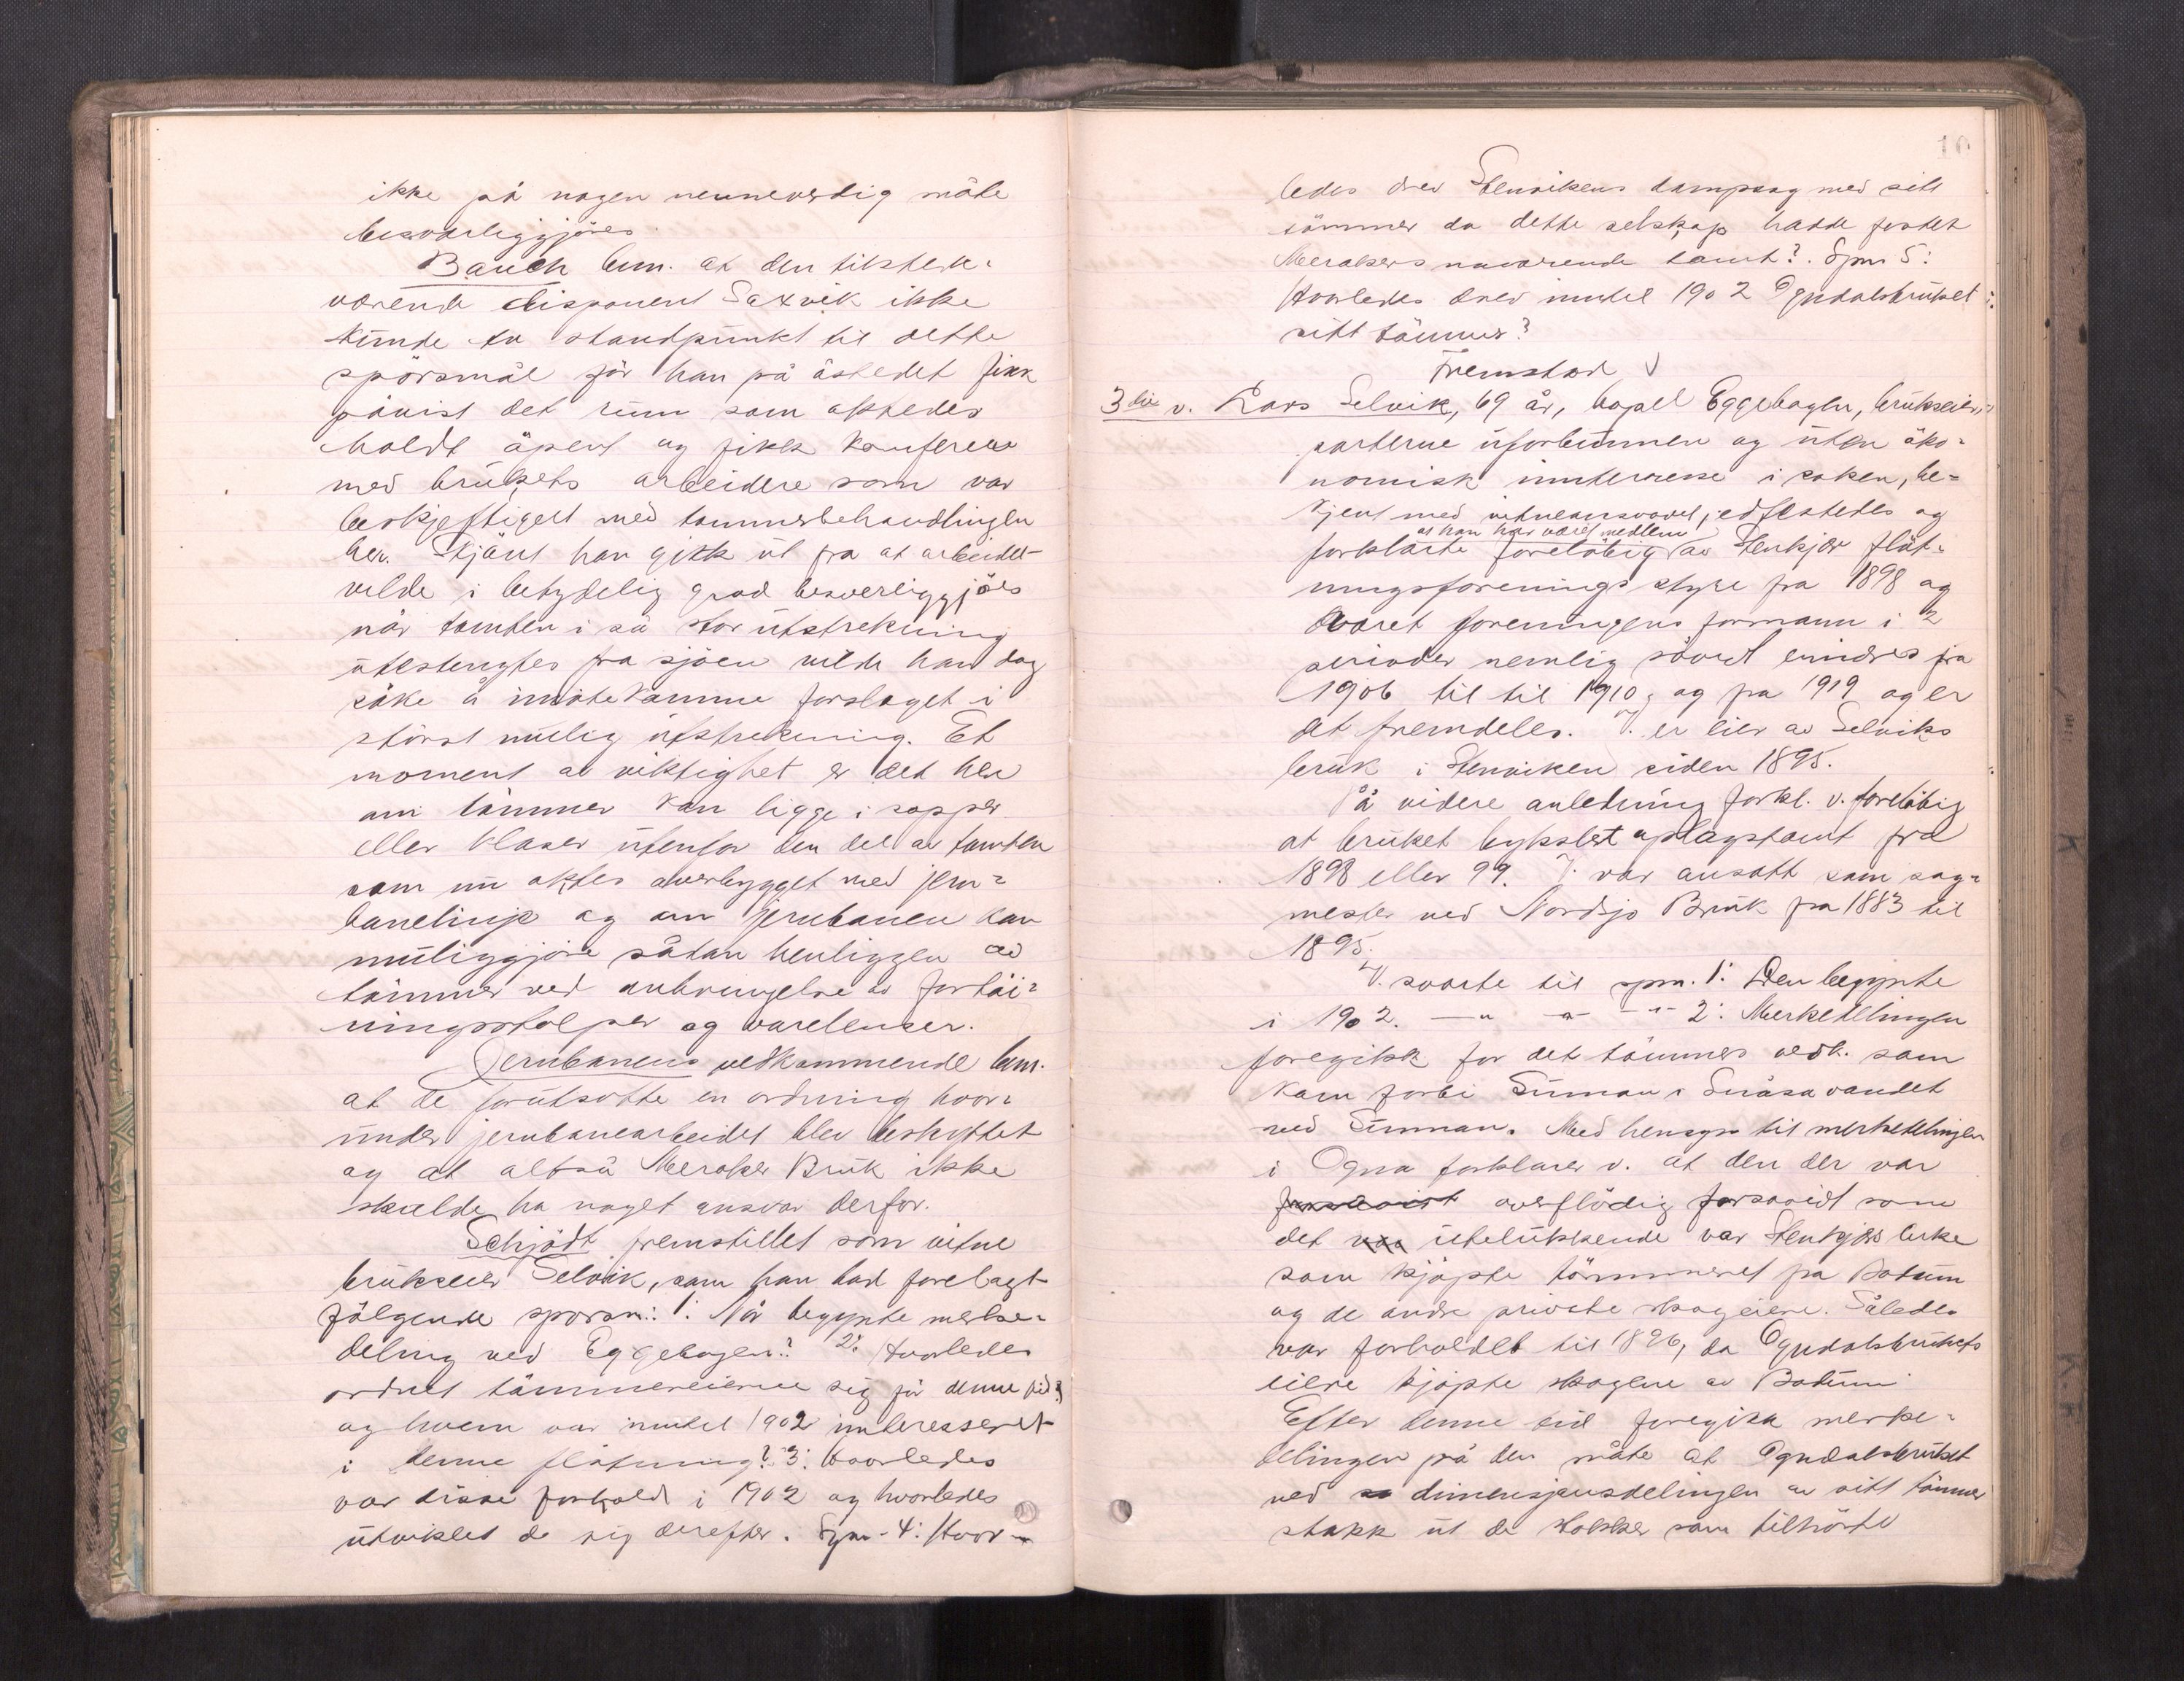 ikke på nogen nevneverdig måte
besværliggjöres.
Bauch bem. at den tilstede-
værende disponent Saxvik ikke
kunde ta standpunkt til dette
spörsmål för han på åstedet fikk
påvist det rum som aktedes
holdt åpent og fikk konferere
med brukets arbeidere som var
beskjeftiget med tömmerbehandlingen
her. Skjönt han gikk ut fra at arbeidet
vilde i betydelig grad besverliggjöres
når tomten i så stor utstrekning
utestengtes fra sjöen vilde han dog
söke å imötekomme forslaget i
störst mulig utstrekning. Et
moment av viktighet er det her
om tömmer kan ligge i sopper
eller klaser utenfor den del av tomten
som nu aktes overbygget med jern-
banelinje og om jernbanen kan
muliggjöre sådan henliggen av
tömmer ved anbringelse av fortöi-
ningsstolper og varelenser.
Jernbanens vedkommende bem.
at de forutsatte en ordning hvor-
under jernbanearbeidet blev beskyttet
og at altså Meraker Bruk ikke
skulde ha noget ansvar derfor.
Schjödt fremstillet som vitne
brukseier Selvik, som han bad forelagt
fölgende spörsm.: 1: Når begynte merke-
deling ved Eggebogen? 2: Hvorledes
ordnet tömmereierne sig för denne tid,
og hvem var inntil 1902 interesseret
i denne flötning? 3: Hvorledes
var disse forhold i 1902 og hvorledes
utviklet de sig derefter. Spm. 4: Hvor-
10
ledes drev Stenvikens dampsag med sitt
tömmer da dette selskap hadde festet
Merakers nuværende tomt? Spm 5:
Hvorledes drev inntil 1902 Ogndalsbruket
sitt tömmer?
Fremstod
3die v. Lars Selvik, 69 år, bopel Eggebogen, brukseier,
parterne uforbunnen og uten öko-
nomisk innteresse i saken, be-
kjent med vitneansvaret, edfestedes og
at han har været medlem
forklarte foreløbig av Stenkjær flöt-
ningsforenings styre fra 1898 og
været foreningens formann i 2
perioder nemlig såvidt erindres fra
1906 til til 1910, og fra 1919 og er
det fremdeles. V. er eier av Selviks
bruk i Stenviken siden 1895.
På videre anledning forkl. v. foreløbig
at bruket bykslet oplagstomt fra
1898 eller 99. V. var ansatt som sag-
mester ved Nordsjø Bruk fra 1883 til
1895.
V. svarte til spm. 1: Den begynte
i 1902. — " — " — " — 2: Merkedelingen
foregikk for det tömmers vedk. som
kom forbi Sunnan i Snåsavandet
ved Sunnan. Med hensyn til merkedelingen
i Ogna forklarer v. at den der var
overflödig forsåvidt som
det utelukkende var Stenkjers
som kjöpte tömmeret fra Bodum
og de andre private skogeiere. Således
var forholdet til 1896, da Ogndalsbrukets
eiere kjöpte skogene av Bodum.
Efter denne tid foregikk merke-
delingen på den måte at Ogndalsbruket
ved dimensjonsdelingen av sitt tömmer
stakk ut de stokker som tilhörte